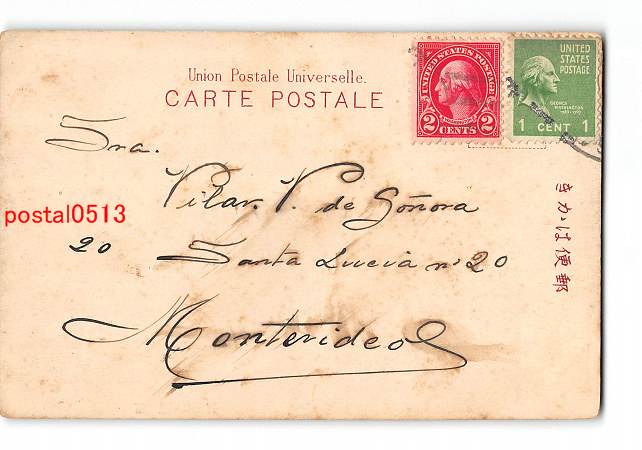 Union Postale Universelle.
CARTE POSTALE
UNITED STATES POSTAGE
WASHINGTON
2 CENTS 2
UNITED
STATES
POSTAGE
GEORGE
WASHINGTON
1 CENT 1
Sra.
Pilar V. de Soñora
20 Santa Lucia nº 20
Montevideo
きかは便郵
postal0513